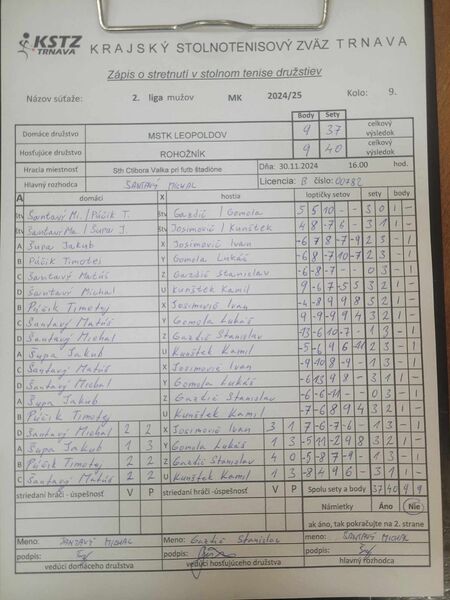 KSTZ TRNAVA KRAJSKÝ STOLNOTENISOVÝ ZVÄZ TRNAVA
Zápis o stretnutí v stolnom tenise družstiev
Názov súťaže: 2. liga mužov MK 2024/25 Kolo: 9.
Body Sety
Domáce družstvo MSTK LEOPOLDOV 9 37 celkový výsledok
Hosťujúce družstvo ROHOŽNÍK 9 40 celkový výsledok
Hracia miestnosť Sth Ctibora Valka pri futb štadióne Dňa: 30.11.2024 16.00 hod.
Hlavný rozhodca ŠANTAVÝ MICHAL Licencia: B číslo: 00782
A domáci X hostia loptičky setov sety body
Štv Šantavý Mi. / Púčik T. Štv Gazdič / Gomola 5 5 10 - - 3 0 1 -
Štv Šantavý Ma. / Šupa J. Štv Josimovič / Kunštek 4 8 -7 6 - 3 1 1 -
A Šupa Jakub X Josimovič Ivan -6 7 8 -7 -9 2 3 - 1
B Púčik Timotej Y Gomola Lukáš -6 8 -7 10 -7 2 3 - 1
C Šantavý Matúš Z Gazdič Stanislav -6 -8 -7 - - 0 3 - 1
D Šantavý Michal U Kunštek Kamil 9 -6 7 -5 5 3 2 1 -
B Púčik Timotej X Josimovič Ivan -4 -8 9 9 8 3 2 1 -
C Šantavý Matúš Y Gomola Lukáš 9 -9 -9 9 4 3 2 1 -
D Šantavý Michal Z Gazdič Stanislav -13 -6 10 -7 - 1 3 - 1
A Šupa Jakub U Kunštek Kamil
C Šantavý Matúš X Josimovič Ivan 1 3 - 1
D Šantavý Michal Y Gomola Lukáš -6 13 4 8 - 3 1 1 -
A Šupa Jakub Z Gazdič Stanislav -6 -6 -11 - - 0 3 - 1
B Púčik Timotej U Kunštek Kamil -7 -6 8 9 4 3 2 1 -
D Šantavý Michal 2 2 X Josimovič Ivan 3 1 7 -6 -7 -6 - 1 3 - 1
A Šupa Jakub 1 3 Y Gomola Lukáš 1 3 -5 11 -2 9 8 3 2 1 -
B Púčik Timotej 2 2 Z Gazdič Stanislav 4 0 -5 -8 7 -9 - 1 3 - 1
C Šantavý Matúš 2 2 U Kunštek Kamil 1 3 -8 4 9 6 - 3 1 1 -
striedaní hráči - úspešnosť V P striedaní hráči -úspešnosť V P Spolu sety a body 37 40 9 9
Námietky Áno Nie
ak áno, tak pokračujte na 2. strane
Meno: ŠANTAVÝ MICHAL Meno: Gazdič Stanislav Meno: ŠANTAVÝ MICHAL
podpis: podpis: podpis:
vedúci domáceho družstva vedúci hosťujúceho družstva hlavný rozhodca